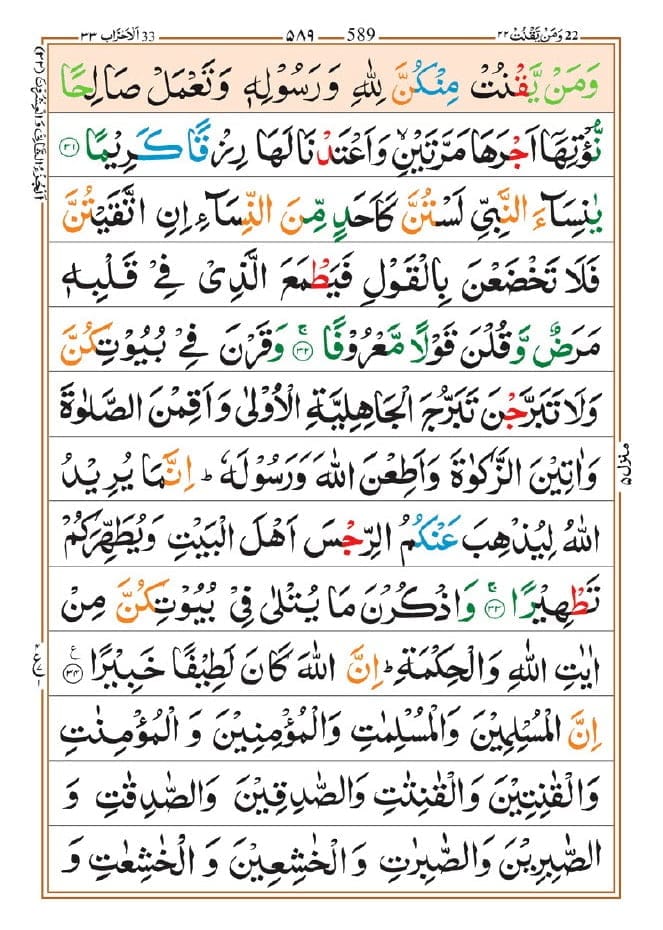 22 وَمَنْ يَّقْنُتْ ٢٢ 589 ٥٨٩ 33 اَلْاَحْزَاب ٣٣
وَمَنْ يَّقْنُتْ مِنْكُنَّ لِلّٰهِ وَرَسُوْلِهٖ وَتَعْمَلْ صَالِحًا
نُّؤْتِهَاۤ اَجْرَهَا مَرَّتَيْنِۙ وَاَعْتَدْنَا لَهَا رِزْقًا كَرِيْمًا ۝٣١
يٰنِسَآءَ النَّبِيِّ لَسْتُنَّ كَاَحَدٍ مِّنَ النِّسَآءِ اِنِ اتَّقَيْتُنَّ
فَلَا تَخْضَعْنَ بِالْقَوْلِ فَيَطْمَعَ الَّذِيْ فِيْ قَلْبِهٖ
مَرَضٌ وَّقُلْنَ قَوْلًا مَّعْرُوْفًا ۝٣٢ۚ وَقَرْنَ فِيْ بُيُوْتِكُنَّ
وَلَا تَبَرَّجْنَ تَبَرُّجَ الْجَاهِلِيَّةِ الْاُوْلٰى وَاَقِمْنَ الصَّلٰوةَ
وَاٰتِيْنَ الزَّكٰوةَ وَاَطِعْنَ اللّٰهَ وَرَسُوْلَهٗ ؕ اِنَّمَا يُرِيْدُ
اللّٰهُ لِيُذْهِبَ عَنْكُمُ الرِّجْسَ اَهْلَ الْبَيْتِ وَيُطَهِّرَكُمْ
تَطْهِيْرًا ۝٣٣ۚ وَاذْكُرْنَ مَا يُتْلٰى فِيْ بُيُوْتِكُنَّ مِنْ
اٰيٰتِ اللّٰهِ وَالْحِكْمَةِ ؕ اِنَّ اللّٰهَ كَانَ لَطِيْفًا خَبِيْرًا ۝٣٤ع
اِنَّ الْمُسْلِمِيْنَ وَالْمُسْلِمٰتِ وَالْمُؤْمِنِيْنَ وَالْمُؤْمِنٰتِ
وَالْقٰنِتِيْنَ وَالْقٰنِتٰتِ وَالصّٰدِقِيْنَ وَالصّٰدِقٰتِ وَ
الصّٰبِرِيْنَ وَالصّٰبِرٰتِ وَالْخٰشِعِيْنَ وَالْخٰشِعٰتِ وَ
اَلْجُزْءُ الثَّانِيْ وَالْعِشْرُوْنَ (٢٢)
منزل ٥